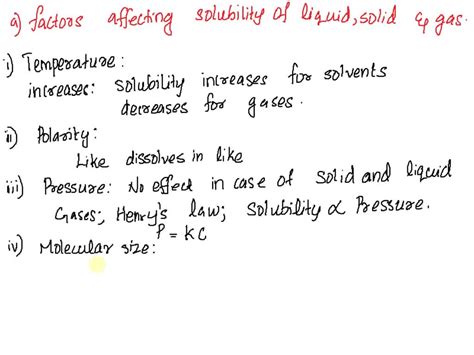 a) factors affecting solubility of liquid, solid & gas.
i) Temperature:
increases: solubility increases for solvents
decreases for gases.
ii) Polarity:
Like dissolves in like
iii) Pressure: No effect in case of solid and liquid
Gases; Henry's law; solubility ∝ Pressure.
P = KC
iv) Molecular size: